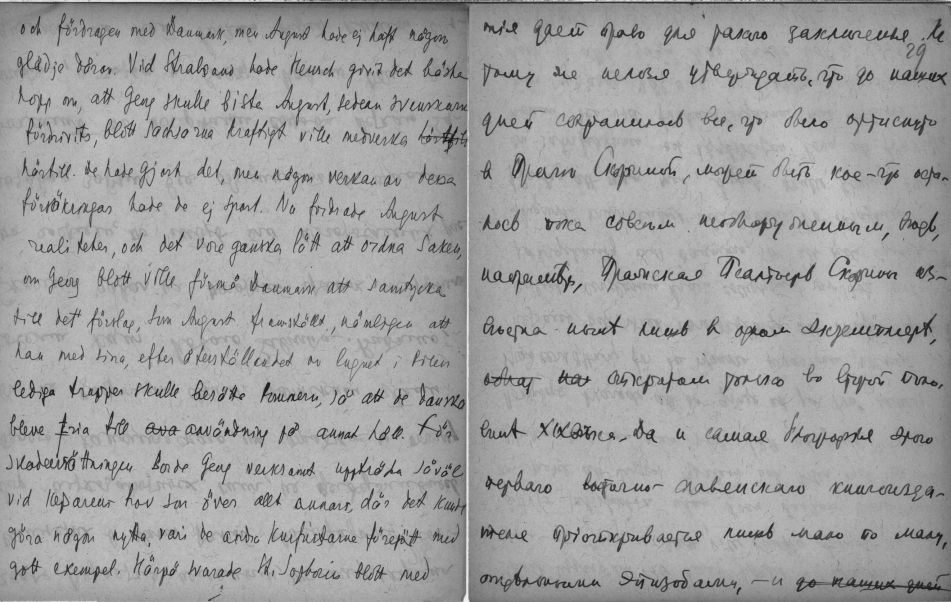 och fördragen med Danmark, men August hade ej haft någon
glädje därav. Vid Stralsund hade Heusch givit det bästa
hopp om, att Georg skulle bistå August, sedan svenskarna
fördrivits, blott Sachsarna kraftigt ville medverka
härtill. De hade gjort det, men någon verkan av dessa
försäkringar hade de ej sport. Nu fordrade August
realiteter, och det vore ganska lätt att ordna saken,
om Georg blott ville förmå Danmark att samtycka
till det förslag, som August framställt, nämligen att
han med sina, efter återställandet av lugnet i Polen
lediga trupper skulle besätta Pommern, så att de danska
bleve fria till ava användning på annat håll. För
skadeersättningen borde Georg verksamt uppträda såväl
vid Kejsarens hov som över allt annars, där det kunde
göra någon nytta, vari de andra kurfurstarne föregått med
gott exempel. Härpå svarade blott med
29
тія дает право для такого заключенія. К
тому же нельзя утверждать, что до наших
дней сохранилось все, что было оттиснуто
в Прагѣ Скориной, может быть кое-что оста-
лось пока совсем необнаруженным, вѣдь,
напримѣр, Пражская Псалтырь Скорины из-
вѣстна нынѣ лишь в одном экземплярѣ,
открытом только во второй поло-
винѣ XIX вѣка. Да и самая біографія этого
перваго восточно-славянскаго книгоизда-
теля пріоткрывается лишь мало по малу,
отдѣльными эпизодами, – и до наших дней